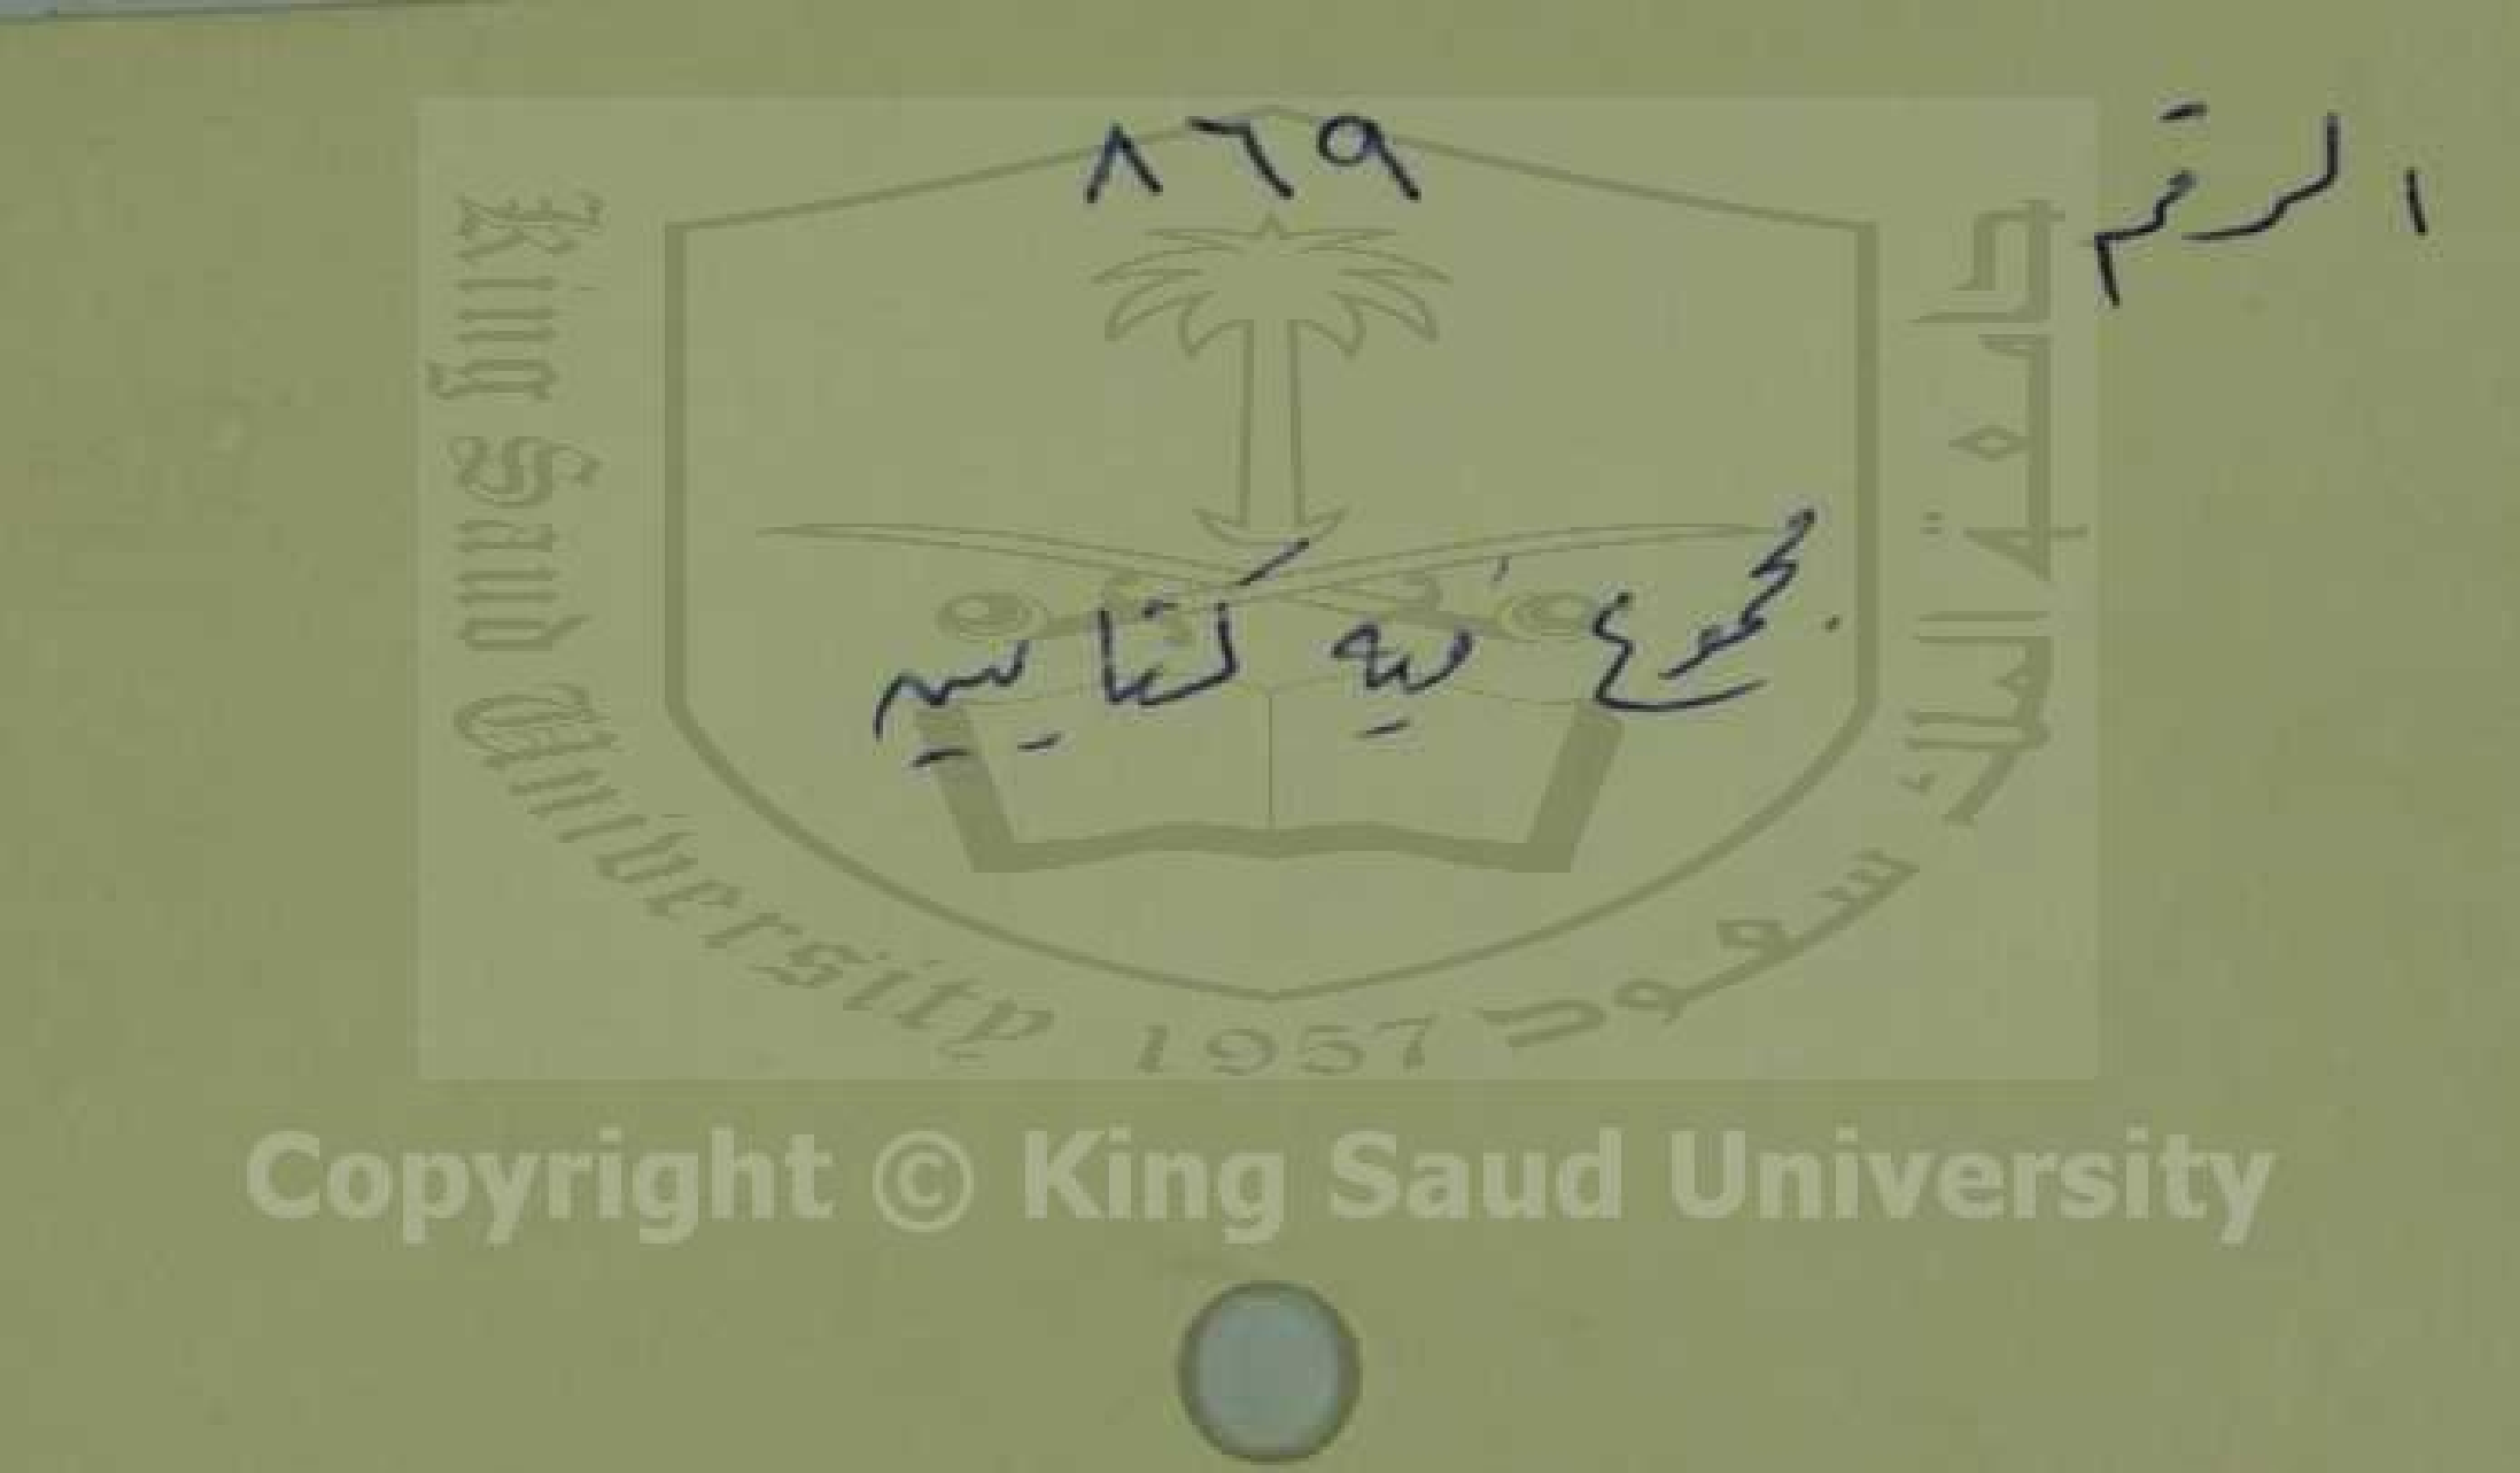 الرقم ٨٦٩
مجموع فيه كتابين
King Saud University 1957 جامعة الملك سعود
Copyright © King Saud University